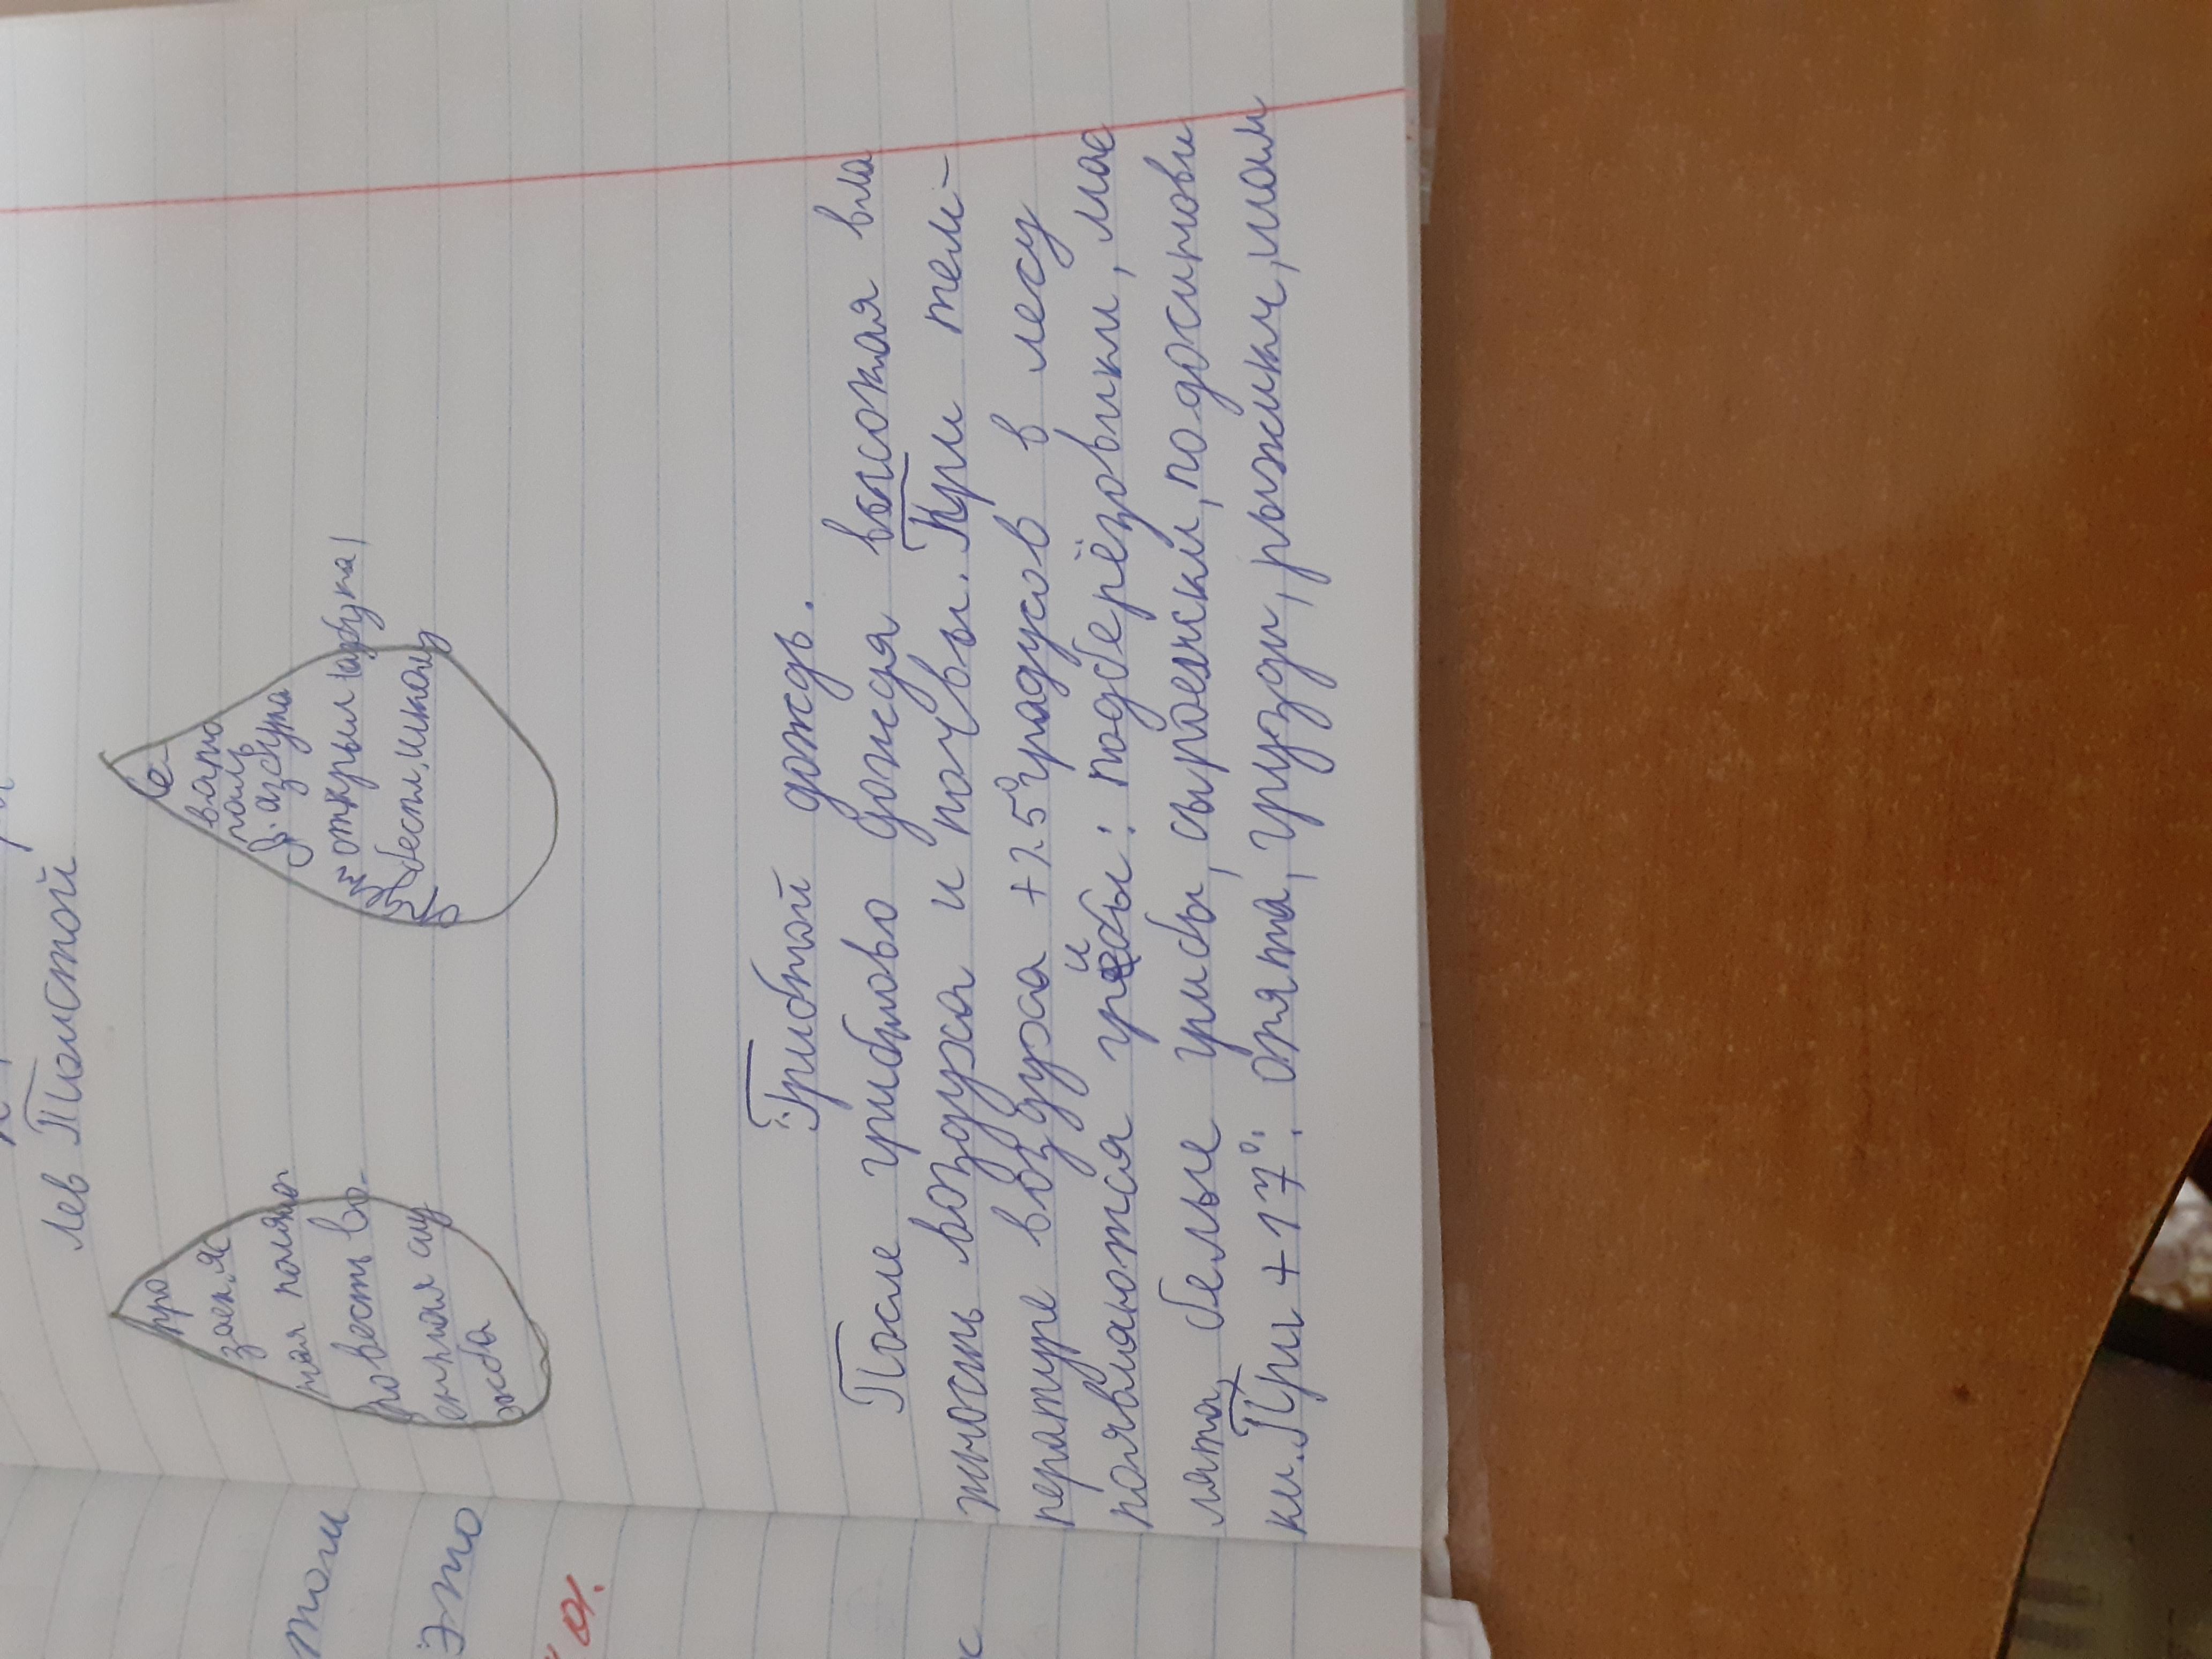 Лев Толстой
про
заек, яс
ная поляна
повесть во-
енная слу
жба
се-
вапо
поль
Я. азбука
открыл (азбука)
беспл, школу
Грибной дождь.
После грибново дождя высокая вла
жность воздуха и почвы. При тем-
пературе воздуха +25° градусов в лесу
появляются грибы: подберёзовики, мас
лята, белые грибы, сыроежки, подосинови
ки. При +17°: опята, грузди, рыжики, шам
тои
Это